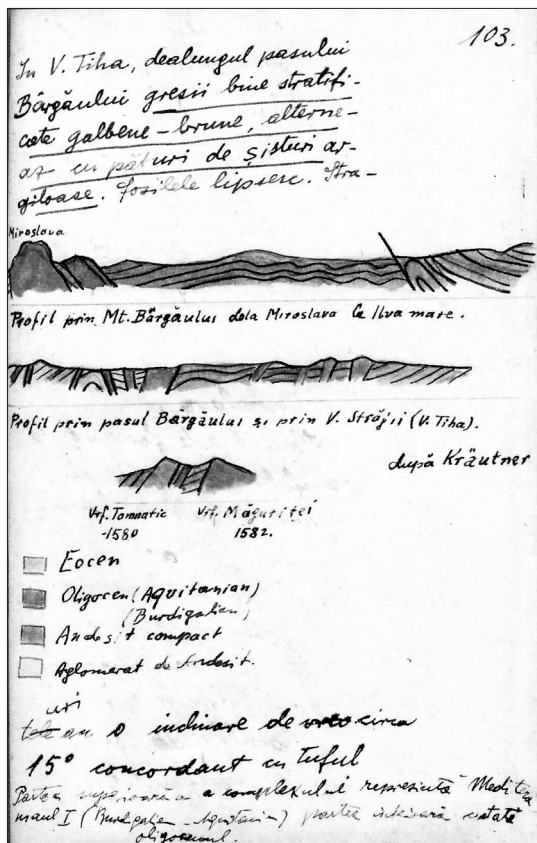 103.
In V. Tiha, dealungul pasului
Bârgăului gresii bine stratifi-
cate galbene - brune, alterne-
az cu pături de șisturi ar-
giloase. Fosilele lipsesc. Stra-
Miroslava
Profil prin Mt. Bârgăului dela Miroslava la Ilva mare.
Profil prin pasul Bârgăului și prin V. Străjii (V. Tiha).
după Kräutner
Vrf. Tomnatic Vrf. Măguriței
1580 1582.
Eocen
Oligocen (Aquitanian)
(Burdigalien)
Andesit compact
Aglomerat de Andesit.
uri
au o inclinare de circa
15° concordant cu tuful
Partea superioară a complexului represintă Medite
ranul I (Burdigalien - Aquitanian) partea inferioară
oligocenul.